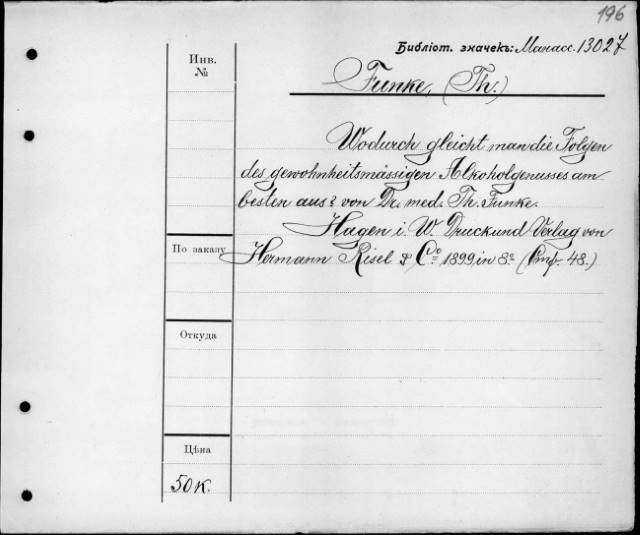 196
Библіот. значекъ: Манасс. 13027
Инв.
№
Funke, (Th.)
Wodurch gleicht man die Folgen
des gewohnheitsmässigen Alkoholgenusses am
besten aus? von Dr. med. Th. Funke.
Hagen i. W. Druck und Verlag von
По заказу
Hermann Risel & Co. 1899, in 8º (Стр. 48.)
Откуда
Цѣна
50 к.